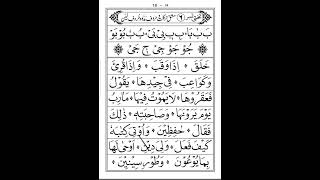 بَ بَا، بِ بِيْ بَيْ، بُ بُوْ بَوْ
جُ جُوْ جَوْ جِيْ جِ جَيْ
خَلَقَ ۝ اِذَا وَقَبَ ۝ وَاِذَا قُرِئَ
وَكَوَاعِبَ ۝ فِيْ جِيْدِهَا ۝ يَقُوْلُ
فَعَقَرُوْهَا ۝ لَا يَمُوْتُ فِيْهَا ۝ مَاٰرِبُ
يَوْمَ يَرَوْنَهَا ۝ وَصَاحِبَتِهٖ ۝ ذٰلِكَ
فَقَالَ ۝ حٰفِظِيْنَ ۝ وَاُوْتِيَ كِتٰبَهٗ
كَيْفَ فَعَلَ ۝ وَلِيَ دِيْنِ ۝ اَوْحٰى لَهَا
بِمَا يُوْعُوْنَ ۝ وَطُوْرِ سِيْنِيْنَ